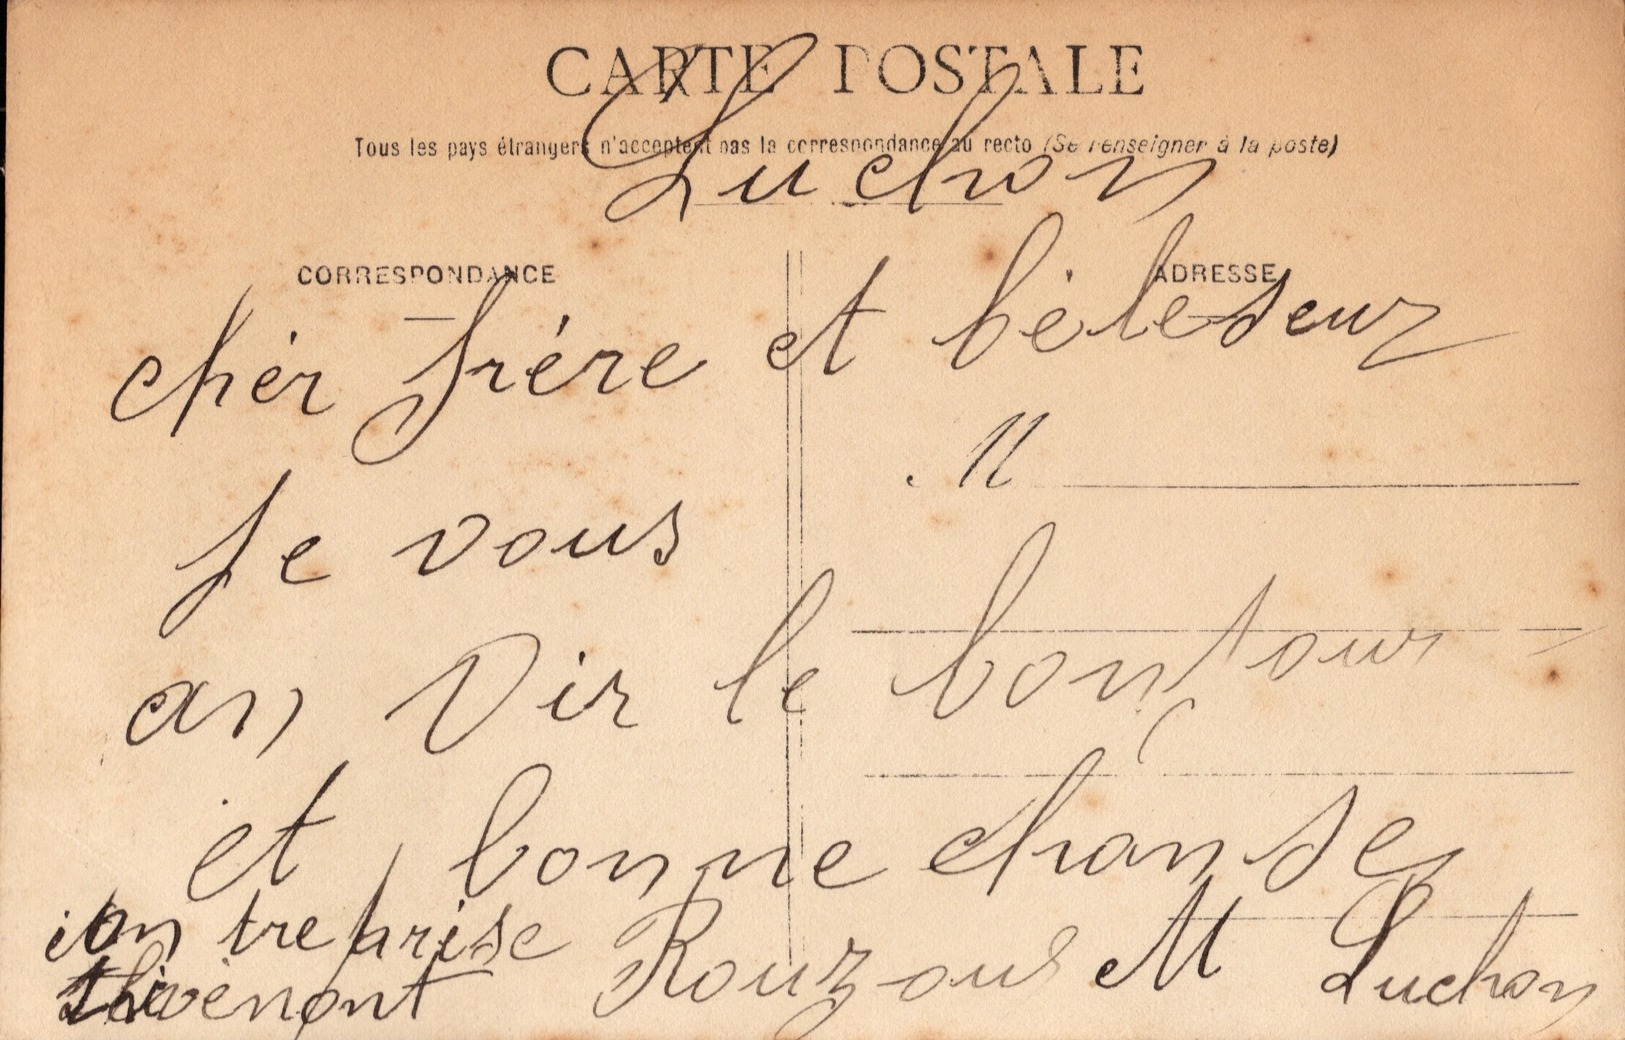 CARTE POSTALE
Tous les pays étrangers n'acceptent pas la correspondance au recto (Se renseigner à la poste)
Luchon
CORRESPONDANCE
ADRESSE
chér frére et béleseur
M
Je vous
an vir le bonjour
et bonne chanse
antreprise Rouzous M Luchon
thivènont